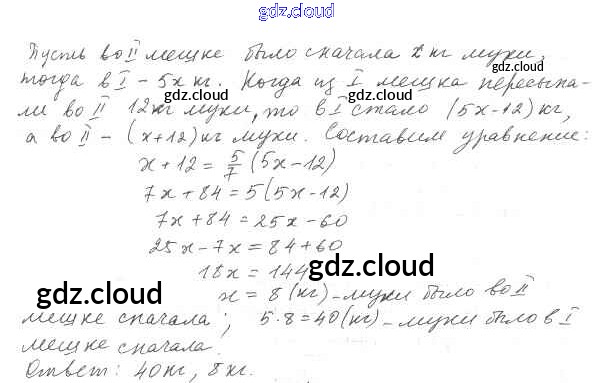 gdz.cloud
Пусть во II мешке было сначала x кг муки,
тогда в I – 5x кг. Когда из I мешка пересыпа-
gdz.cloud gdz.cloud
ли во II 12 кг муки, то в I стало (5x-12) кг,
а во II – (x+12) кг муки. Составим уравнение:
x+12 = 5/7 (5x-12)
7x+84 = 5(5x-12)
7x+84 = 25x-60
25x-7x = 84+60
18x = 144
gdz.cloud
x = 8 (кг) – муки было во II
gdz.cloud
мешке сначала; 5·8=40 (кг) – муки было в I
мешке сначала.
gdz.cloud gdz.cloud
Ответ: 40 кг, 8 кг.